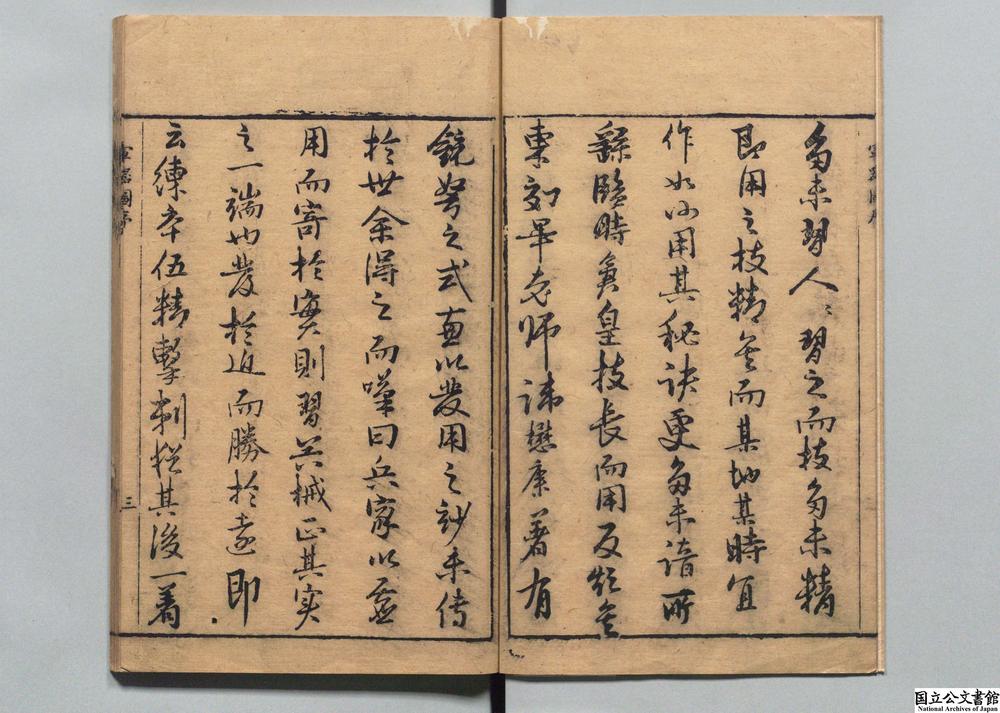 軍器圖序
多未習人〻習之而技多未精
即用之技精矣而其地其時宜
作如何用其秘訣更多未諳所
繇臨時倉皇技長而用反
東郊畢老師諱懋康著有
銃弩之式 以發用之 未傳
於世余得之而嘆曰兵家以虛
用而寄於實則習其械正其实
之一端也發於近而勝於遠即
云練卒伍精擊刺猶其後一着
軍器圖序
三
国立公文書館
National Archives of Japan